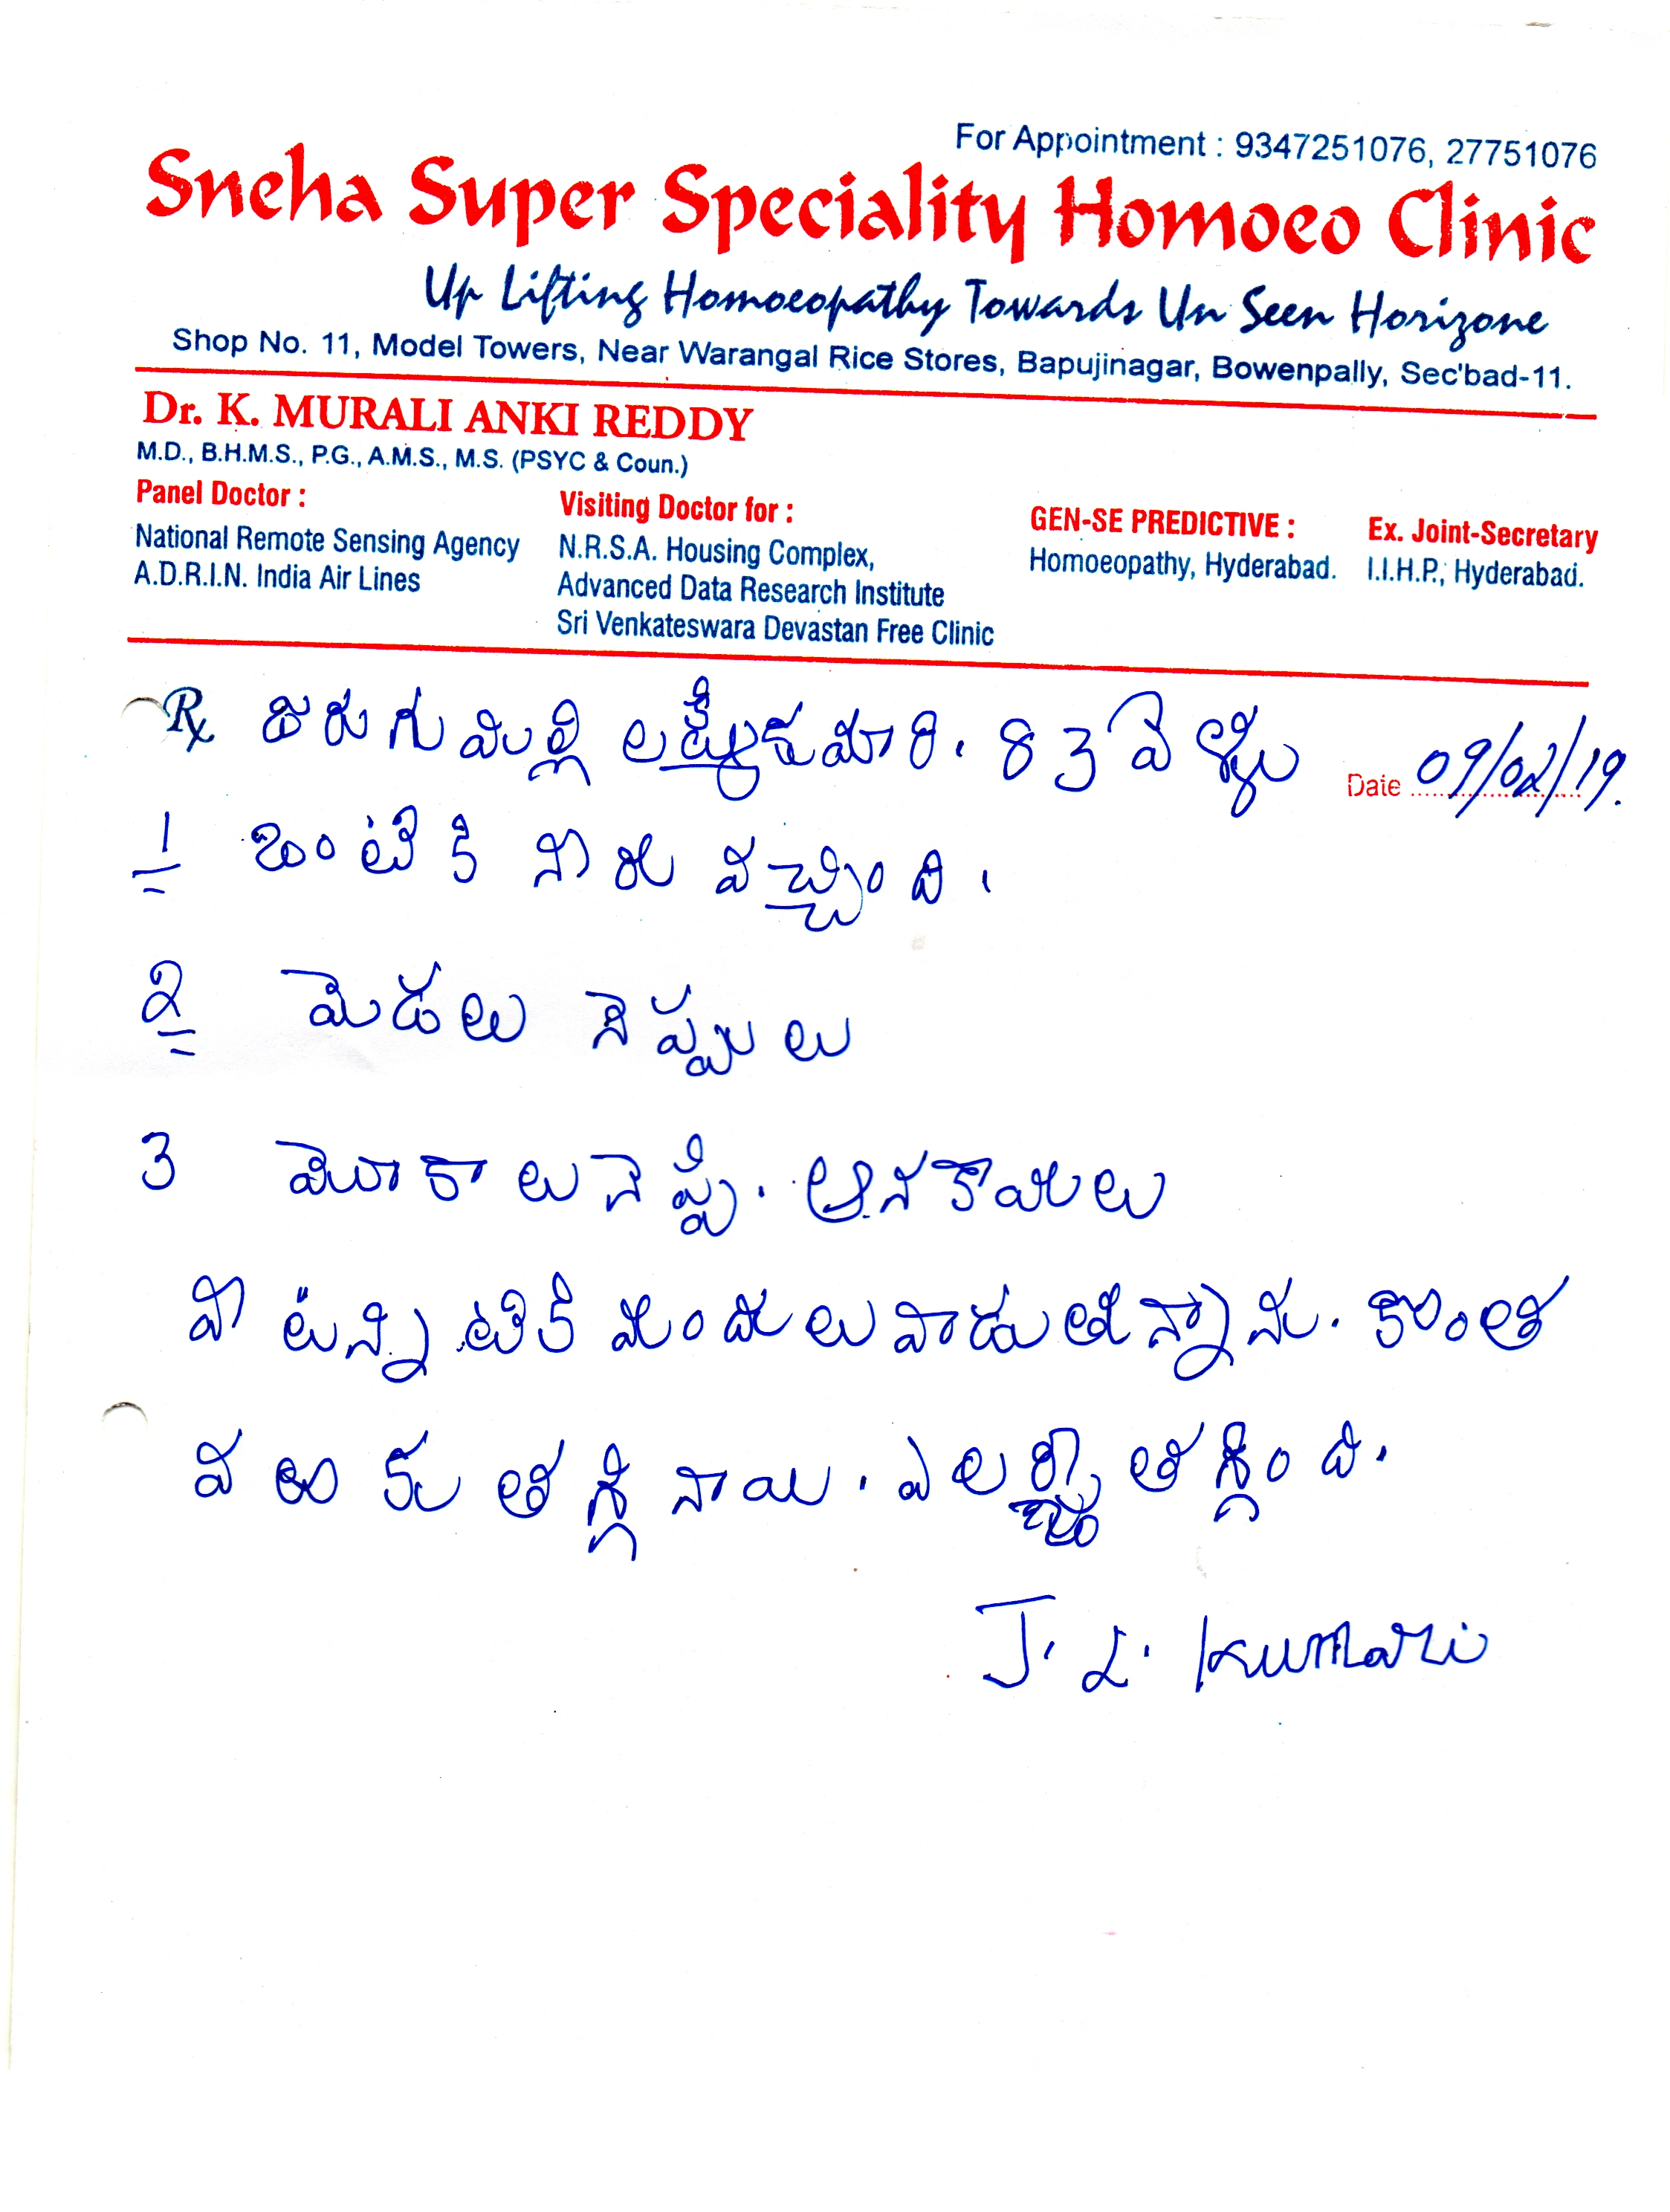 For Appointment : 9347251076, 27751076
Sneha Super Speciality Homoeo Clinic
Up Lifting Homoeopathy Towards Un Seen Horizone
Shop No. 11, Model Towers, Near Warangal Rice Stores, Bapujinagar, Bowenpally, Sec'bad-11.
Dr. K. MURALI ANKI REDDY
M.D., B.H.M.S., P.G., A.M.S., M.S. (PSYC & Coun.)
Panel Doctor :
National Remote Sensing Agency
A.D.R.I.N. India Air Lines
Visiting Doctor for :
N.R.S.A. Housing Complex,
Advanced Data Research Institute
Sri Venkateswara Devastan Free Clinic
GEN-SE PREDICTIVE :
Homoeopathy, Hyderabad.
Ex. Joint-Secretary
I.I.H.P., Hyderabad.
Rx జరుగుమిల్లి లక్ష్మీకుమారి. 83 Date 09/02/19.
1 ఒంటికి నీరు వచ్చింది.
2 మెడలు నెప్పులు
3 మొకాలు నెప్పి. ఆనకాయలు
వీటన్నిటికి మందులు వాడుతున్నాను. కొంత
వరకు తగ్గినాయి. ఎలర్జీ తగ్గింది.
J. L. Kumari